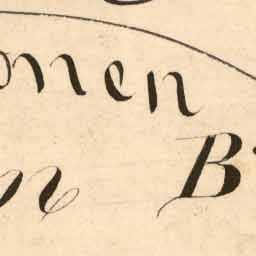 omen
n B